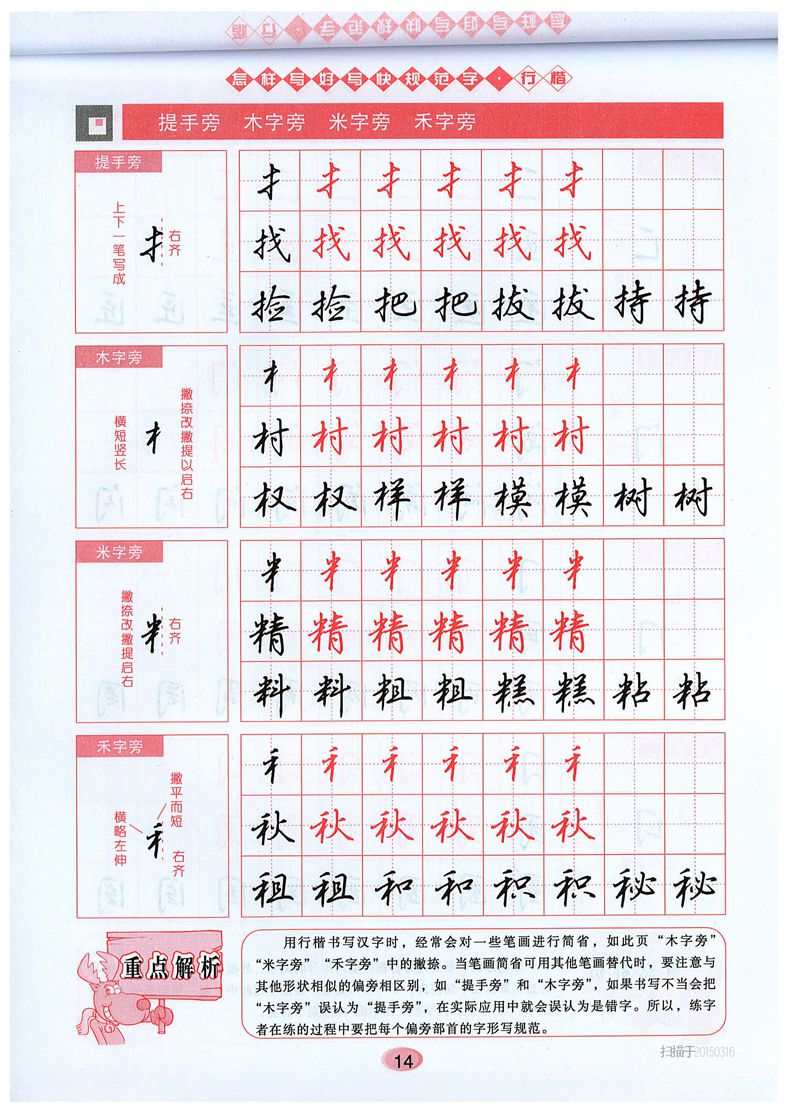 怎样写好写快规范字·行楷
怎样写好写快规范字·行楷
提手旁 木字旁 米字旁 禾字旁
提手旁
上下一笔写成
右齐
扌 扌 扌 扌 扌 扌
找 找 找 找 找 找
捡 捡 把 把 拔 拔 持 持
木字旁
横短竖长
撇捺改撇提以启右
木 木 木 木 木 木
村 村 村 村 村 村
权 权 样 样 模 模 树 树
米字旁
撇捺改撇提启右
右齐
米 米 米 米 米 米
精 精 精 精 精 精
料 料 粗 粗 糕 糕 粘 粘
禾字旁
横略左伸
撇平而短
右齐
禾 禾 禾 禾 禾 禾
秋 秋 秋 秋 秋 秋
租 租 和 和 积 积 秘 秘
重点解析
用行楷书写汉字时，经常会对一些笔画进行简省，如此页“木字旁”
“米字旁” “禾字旁”中的撇捺。当笔画简省可用其他笔画替代时，要注意与
其他形状相似的偏旁相区别，如“提手旁”和“木字旁”，如果书写不当会把
“木字旁”误认为“提手旁”，在实际应用中就会误认为是错字。所以，练字
者在练的过程中要把每个偏旁部首的字形写规范。
14
扫描于20150316